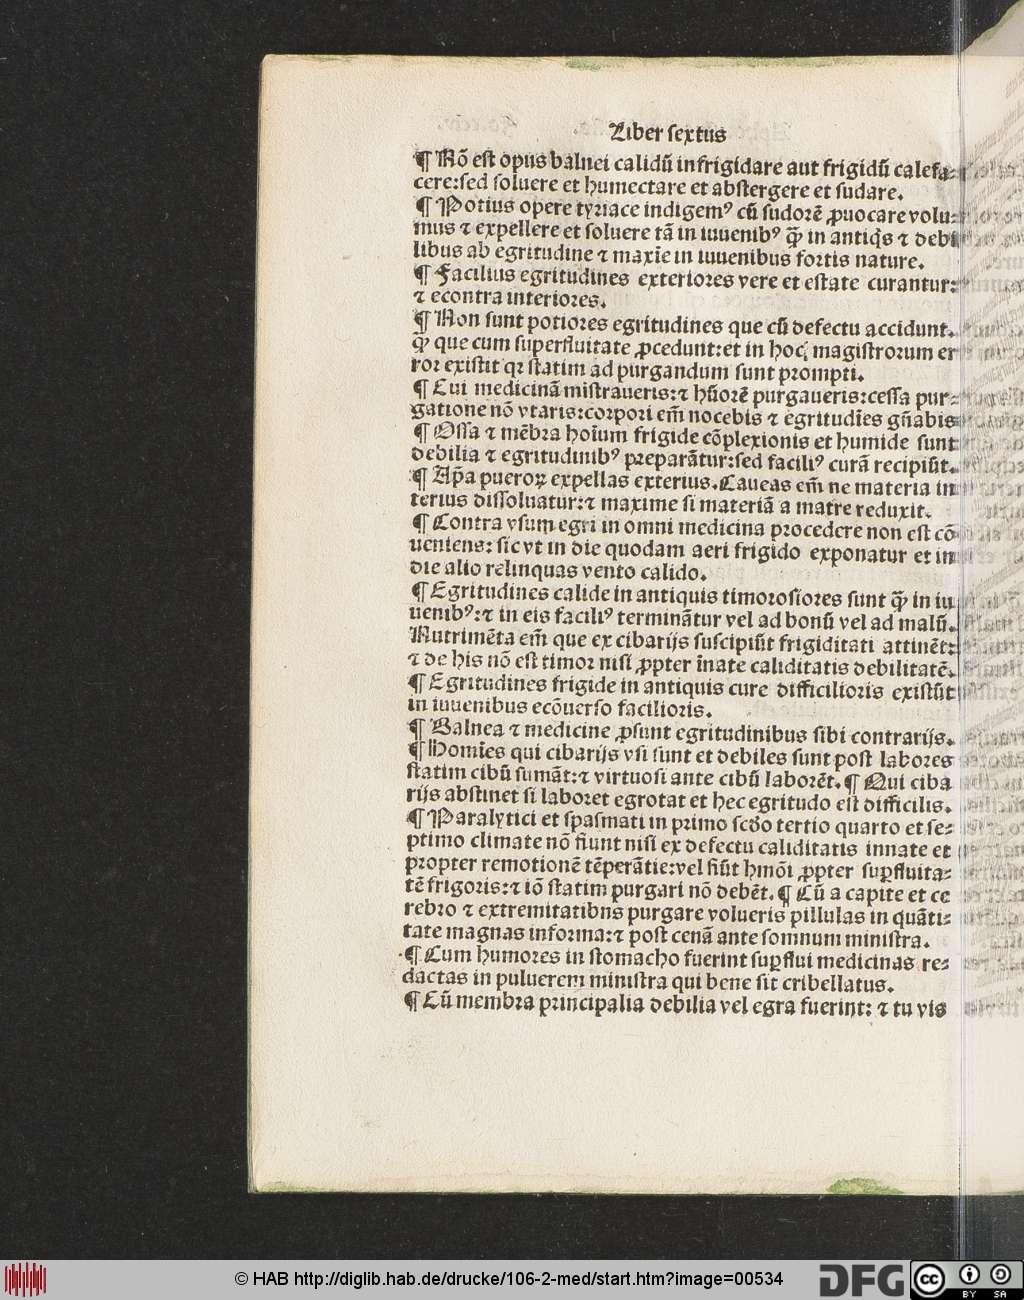 Liber sextus
¶ Nō est opus balnei calidū infrigidare aut frigidū calefa-
cere: sed soluere et humectare et abstergere et sudare.
¶ Potius opere tyriace indigemꝰ cū sudorē ꝓuocare volu-
mus ⁊ expellere et soluere tā in iuuenibꝰ ꝙ̄ in antiq̇s ⁊ debi
libus ab egritudine ⁊ maxīe in iuuenibus fortis nature.
¶ Facilius egritudines exteriores vere et estate curantur:
⁊ econtra interiores.
¶ Non sunt potiores egritudines que cū defectu accidunt.
ꝙ̄ que cum superfluitate ꝓcedunt: et in hoc magistrorum er
ror existit qꝛ statim ad purgandum sunt prompti.
¶ Cui medicinā mistraueris: ⁊ hūorē purgaueris: cessa pur-
gatione nō vtaris: corpori em̄ nocebis ⁊ egritudīes gn̄abis
¶ Ossa ⁊ mēbra hoīum frigide cōplexionis et humide sunt
debilia ⁊ egritudinibꝰ preparātur: sed faciliꝰ curā recipiūt.
¶ Ap̄a pueroꝝ expellas exterius. Caueas em̄ ne materia in
terius dissoluatur: ⁊ maxime si materiā a matre reduxit.
¶ Contra vsum egri in omni medicina procedere non est cō
ueniens: sic vt in die quodam aeri frigido exponatur et in
die alio relinquas vento calido.
¶ Egritudines calide in antiquis timorosiores sunt ꝙ̄ in iu
uenibꝰ: ⁊ in eis faciliꝰ terminātur vel ad bonū vel ad malū.
Nutrimēta em̄ que ex cibarijs suscipiūt frigiditati attinēt:
⁊ de his nō est timor nisi ꝓpter īnate caliditatis debilitatē.
¶ Egritudines frigide in antiquis cure difficilioris existūt
in iuuenibus ecōuerso facilioris.
¶ Balnea ⁊ medicine ꝓsunt egritudinibus sibi contrarijs.
¶ Homīes qui cibarijs vsi sunt et debiles sunt post labores
statim cibū sumāt: ⁊ virtuosi ante cibū laborēt. ¶ Qui ciba
rijs abstinet si laboret egrotat et hec egritudo est difficilis.
¶ Paralytici et spasmati in primo scd̄o tertio quarto et se-
ptimo climate nō fiunt nisi ex defectu caliditatis innate et
propter remotionē tēperātie: vel fiūt hmōi ꝓpter suꝑfluita-
tē frigoris: ⁊ iō statim purgari nō debēt. ¶ Cū a capite et ce
rebro ⁊ extremitatibns purgare volueris pillulas in quāti-
tate magnas informa: ⁊ post cenā ante somnum ministra.
¶ Cum humores in stomacho fuerint suꝑflui medicinas re-
dactas in puluerem ministra qui bene sit cribellatus.
¶ Cū membra principalia debilia vel egra fuerint: ⁊ tu vis
© HAB http://diglib.hab.de/drucke/106-2-med/start.htm?image=00534
DFG
cc
BY SA